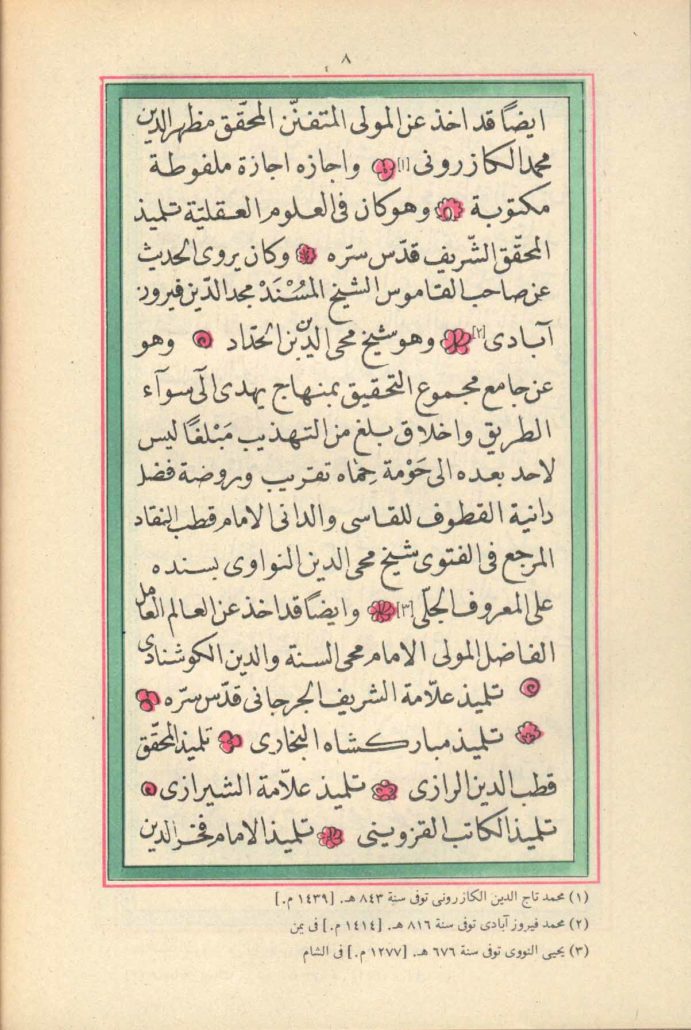 ٨
ايضاً قد اخذ عن المولى المتفنّن المحقّق مظهر الدين
محمد الكازرونى [١] واجازه اجازة ملفوظة
مكتوبة وهو كان فى العلوم العقليّة تلميذ
المحقّق الشّريف قدّس سرّه وكان يروى الحديث
عن صاحب القاموس الشيخ المُسْنَدْ مجد الدّين فيروز
آبادى [٢] وهو شيخ محى الدّين بن الحدّاد وهو
عن جامع مجموع التحقيق بمنهاج يهدى الى سوآء
الطريق واخلاق بلغ من التهذيب مَبْلغًا ليس
لاحد بعده الى حَوْمة حِمٰاه تقريب وبروضة فضل
دانية القطوف للقاسى والدانى الامام قطب النقاد
المرجع فى الفتوى شيخ محى الدين النواوى بسنده
على المعروف الجلّى [٣] وايضاً قد اخذ عن العالم العامل
الفاضل المولى الامام محى السنة والدين الكوشنادى
تلميذ علّامة الشريف الجرجانى قدّس سرّه
تلميذ مباركشاه البخارى تلميذ المحقّق
قطب الدين الرازى تلميذ علّامة الشيرازى
تلميذ الكاتب القزوينى تلميذ الامام فخر الدين
(١) محمد تاج الدين الكازرونى توفى سنة ٨٤٣ هـ. [١٤٣٩ م.]
(٢) محمد فيروز آبادى توفى سنة ٨١٦ هـ. [١٤١٤ م.] فى يمن
(٣) يحيى النووى توفى سنة ٦٧٦ هـ. [١٢٧٧ م.] فى الشام